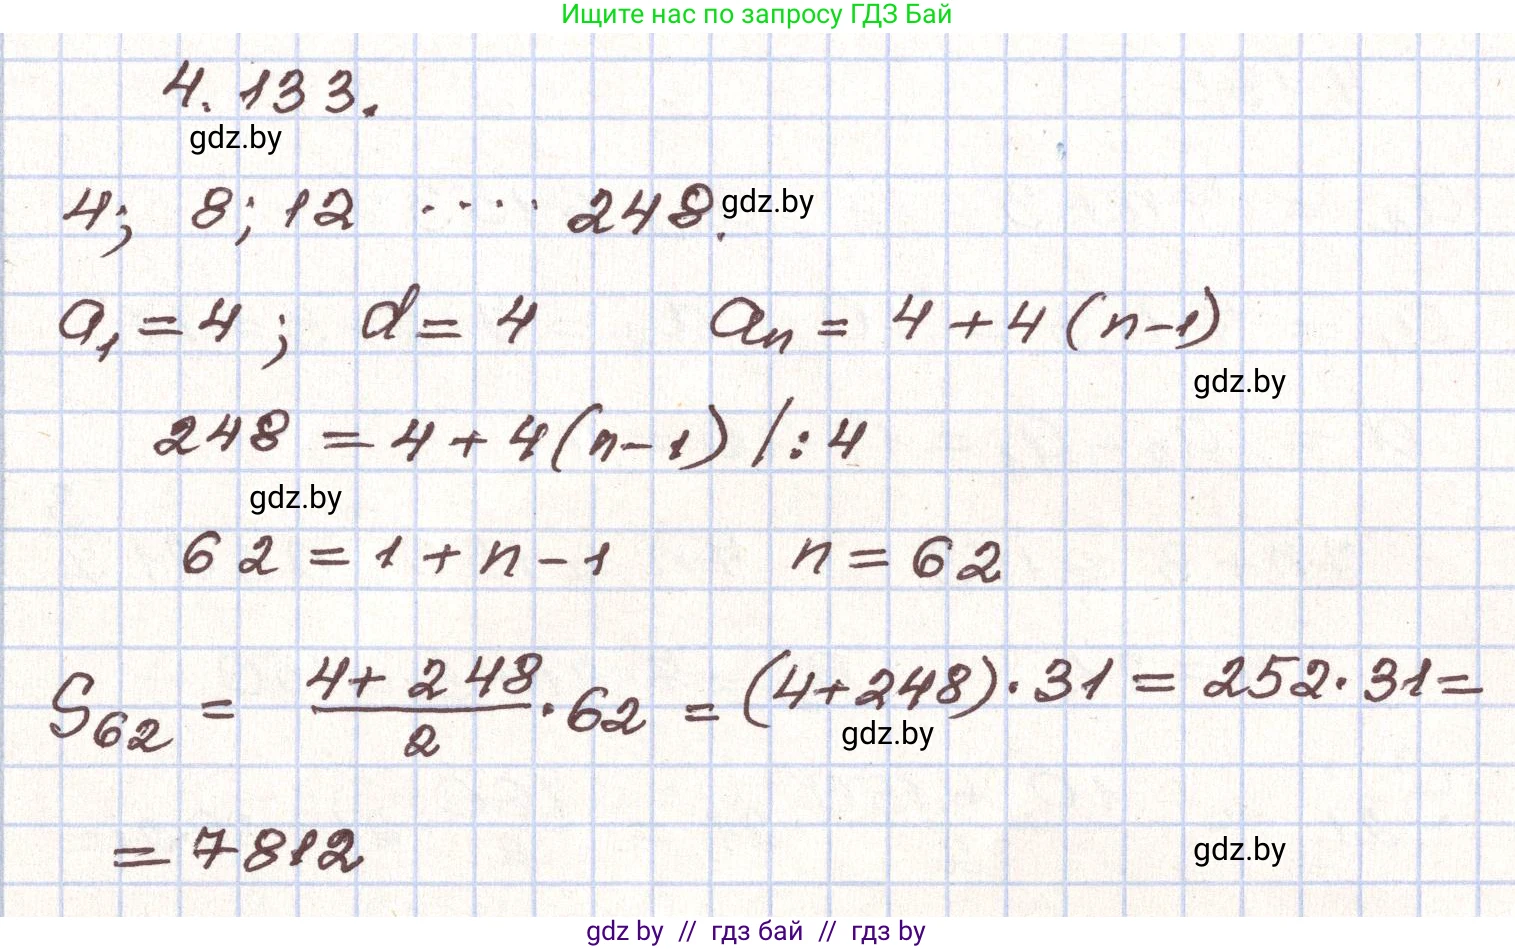 Ищите нас по запросу ГДЗ Бай
4.133.
gdz.by
4; 8; 12 ..... 248.
gdz.by
a₁ = 4; d = 4 aₙ = 4 + 4(n-1)
gdz.by
248 = 4 + 4(n-1) /:4
gdz.by
62 = 1 + n - 1 n = 62
S₆₂ = (4 + 248)/2 · 62 = (4+248) · 31 = 252 · 31 =
gdz.by
= 7812
gdz.by
gdz by // гдз бай // гдз by